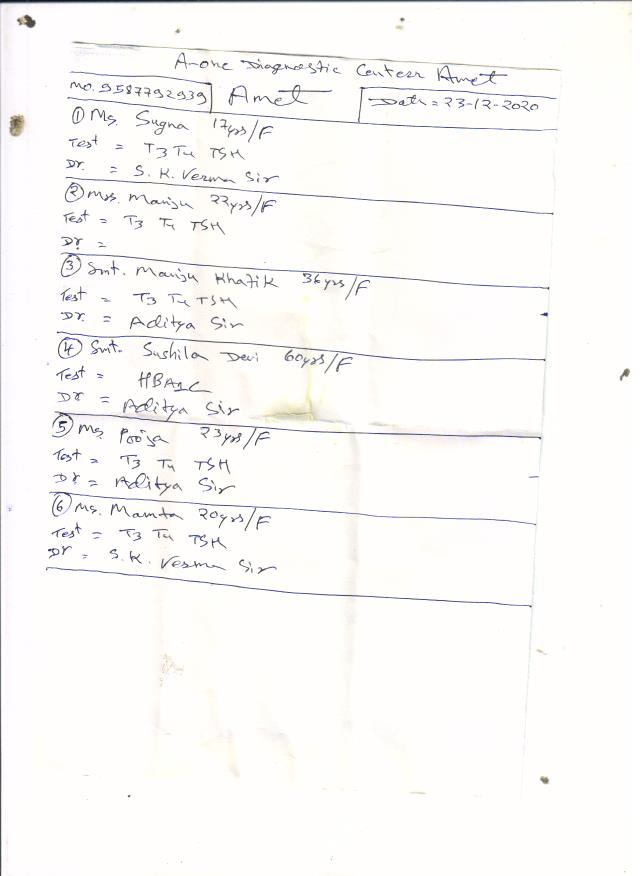 A-one Diagnostic Centerr Amet
Mo. 9587792939 Amet Date = 23-12-2020
① Ms. Sugna 17yrs/F
Test = T3 T4 TSH
Dr. = S. K. Verma Sir
② Mrs. Manju 22yrs/F
Test = T3 T4 TSH
Dr. =
③ Smt. Manju Khatik 36yrs/F
Test = T3 T4 TSH
Dr. = Aditya Sir
④ Smt. Sushila Devi 60yrs/F
Test = HBA1C
Dr = Aditya Sir
⑤ Ms. Pooja 23yrs/F
Test = T3 T4 TSH
Dr. = Aditya Sir
⑥ Ms. Mamta 20yrs/F
Test = T3 T4 TSH
Dr = S. K. Verma Sir